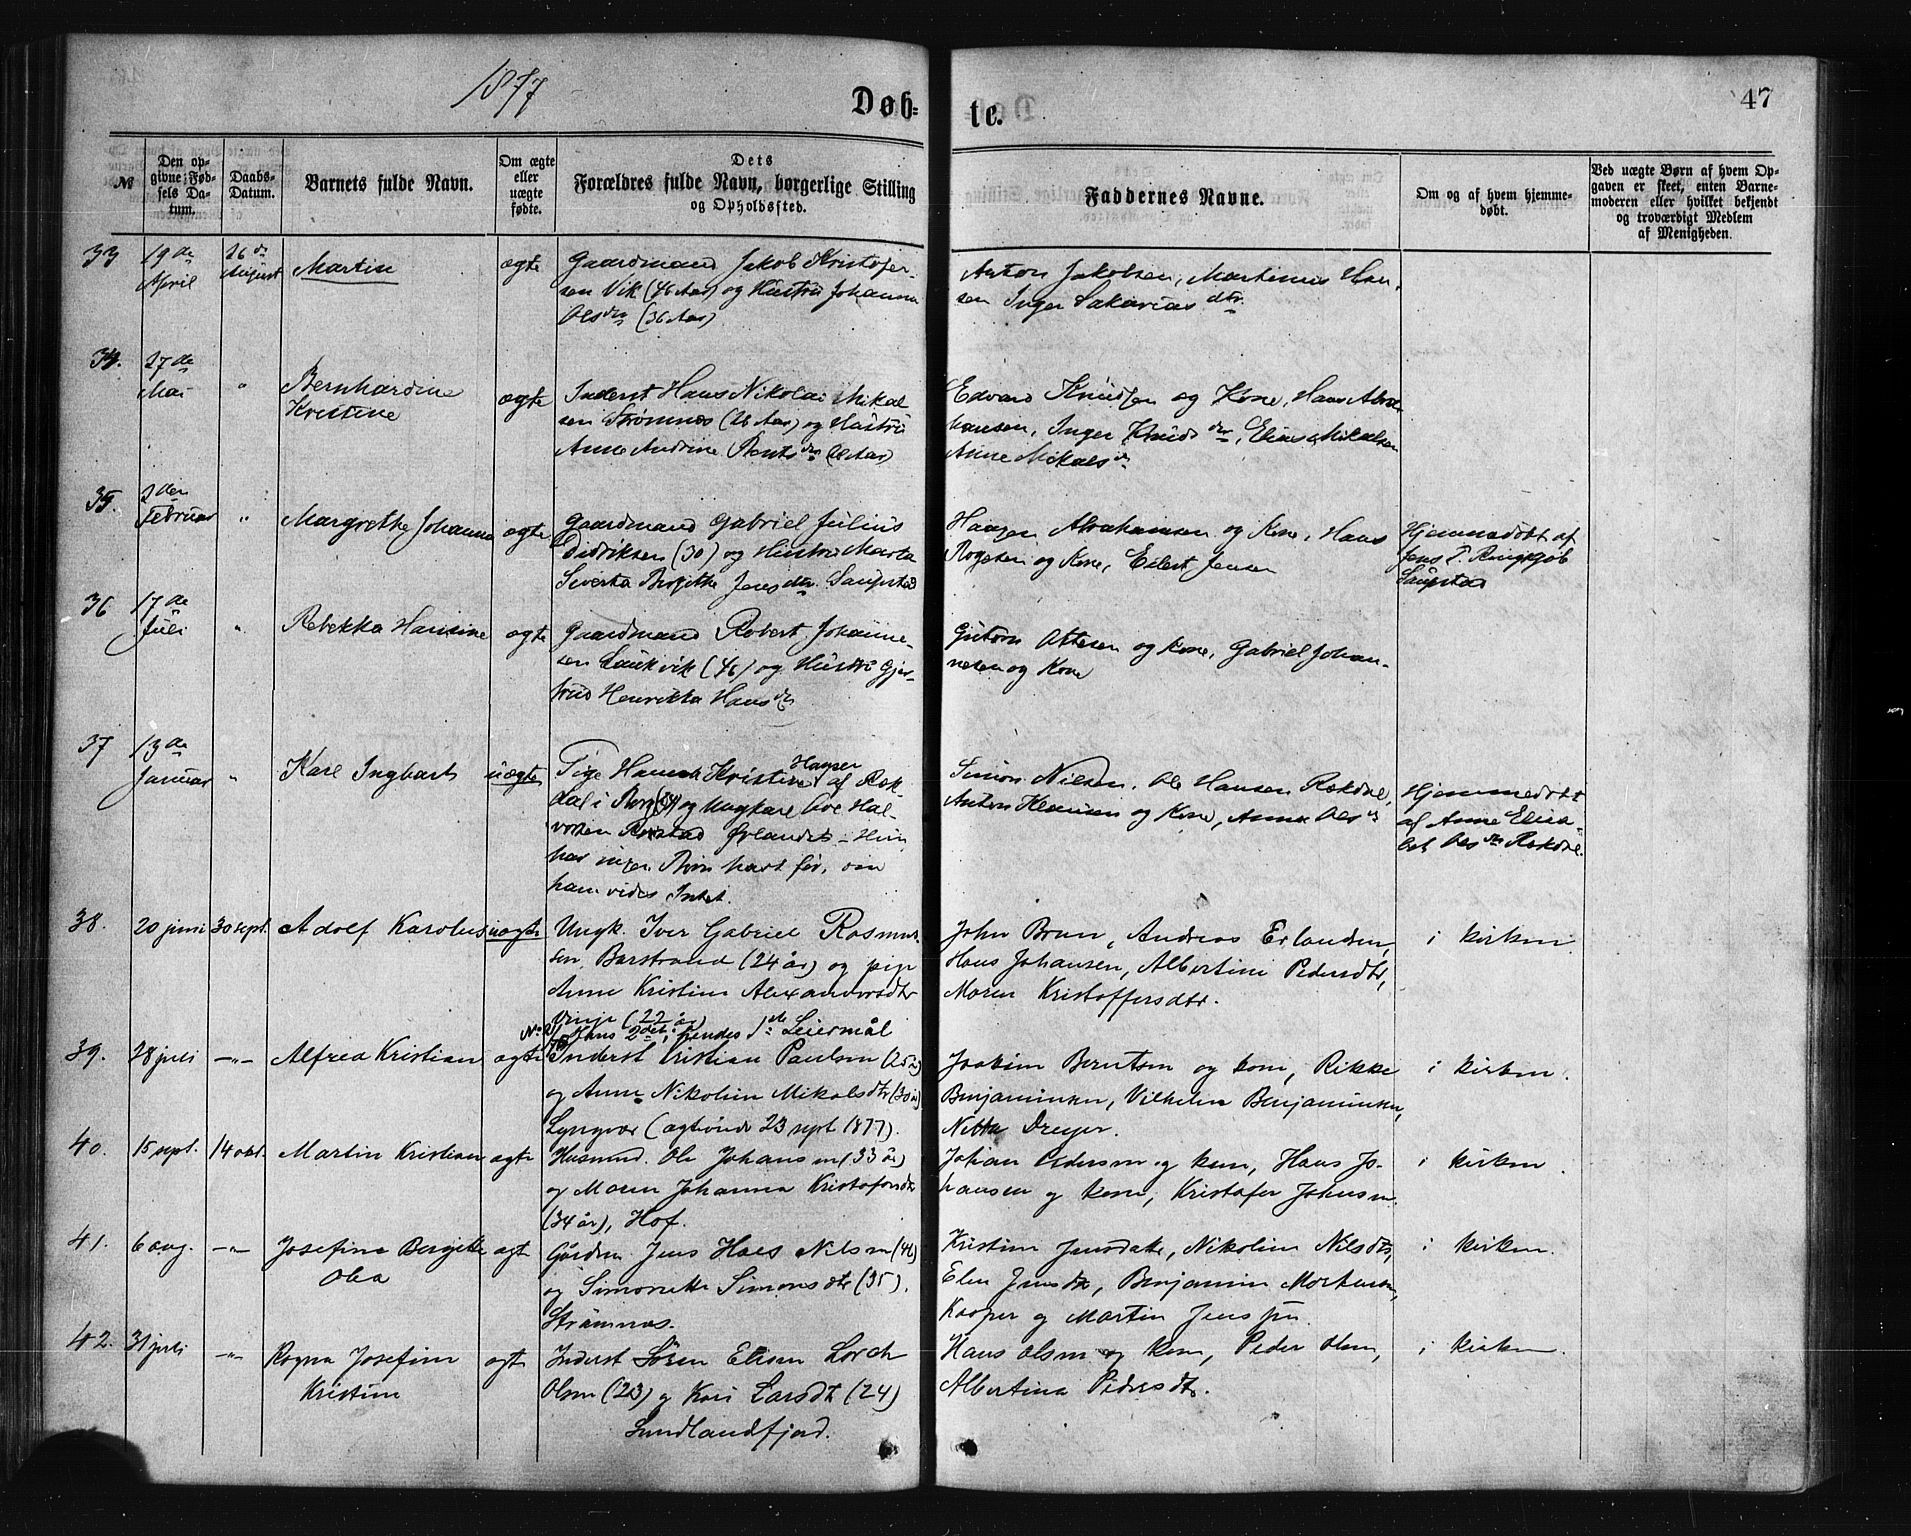 1877
Døb=
te.
47
№
Den op-
givne Fød-
sels Da-
tum.
Daabs-
Datum.
Barnets fulde Navn.
Om ægte
eller
uægte
fødte.
Dets
Forældres fulde Navn, borgerlige Stilling
og Opholdssted.
Faddernes Navne.
Om og af hvem hjemme-
døbt.
Ved uægte Børn af hvem Op-
gaven er skeet, enten Barne-
moderen eller hvilket bekjendt
og troværdigt Medlem
af Menigheden.
33
19de
April
26de
August
Martin
ægte
Gaardmand Jakob Kristofer-
sen Vik (46 Aar) og Hustru Johanna
Olsdtr (36 Aar)
Anton Jakobsen, Martinus Han-
sen Inger Sakariasdtr
34.
27de
Mai
"
Bernhardine
Kristine
ægte
Inderst Hans Nikolai Mikal
sen Strømnes (26 Aar) og Hustru
Anne Andrine Bentsdtr
Edvard Knudsen og Kone, Hans Abra-
hamsen, Inger Knudsdtr, Elias Mikalsen
Anne Mikalsdtr
35.
2den
Februar
"
Margrethe Johanna
ægte
Gaardmand Gabriel Julius
Didriksen (30) og Hustru Marta
Severta Birgitte Jensdtr. Saupstad
Haagen Abrahamsen og Kone, Hans
og Kone, Edert Jensen
Hjemmedøbt af
Jens P. Ringkjøb
Saupstad
36
17de
Juli
"
Rebekka Hansine
ægte
Gaardmand Robert Johanne-
sen Laukvik (46) og Hustru Gjer-
trud Henrikka Hansdtr
Guttorm Ottesen og Kone, Gabriel Johan-
nesen og Kone
37
13de
Januar
"
Karl Ingbart
uægte
Pige Kristine Hansen af Rek-
dal i Borg og Ungkarl Hal-
vorsen Ørlandet – Hun
har ingen Børn havt før, om
ham vides Intet.
Simon Nielsen, Ole Hansen Rekdal,
Anton Klausen og Kone, Anna Olsdtr
Hjemmedøbt
af Anne Elisa-
bet Olsdtr Rekdal.
38.
20 juni
30 sept.
Adolf Karolus
uægte
Ungk. Iver Gabriel Rasmus-
sen, Barstrand (24 år) og pige
Anne Kristine Alexandersdtr
Vinje (22 år)
Hans 2det, hendes 1ste Leiermål
John Brun, Andreas Erlandsen,
Hans Johansen, Albertine Pedersdtr,
Maren Kristoffersdtr.
i kirken
39.
28 juli
–"–
Alfred Kristian
ægte
Inderst Kristian Paulsen
og Anne Nikoline Mikalsdtr (30 år)
Lyngvær (ægtviede 23 sept. 1877).
Joakim Berntsen og kone, Rikke
Benjaminsen, Vilhelm Benjaminsen,
Dreyer.
i kirken.
40.
15 sept.
14 okt.
Martin Kristian
ægte
Husmd. Ole Johansen (33 år)
og Maren Johanna Kristofersdtr
(34 år), Hof.
Johan Pedersen og kone, Hans Jo-
hansen og kone, Kristofer Johnsen.
i kirken.
41.
6 aug.
–"–
Josefine Bergitte
Olea
ægte
Gårdm. Jens Haes Nilsen (46)
og Simonette Simonsdtr (35).
Strømnes.
Kristine Jensdatr, Nikoline Nilsdtr,
Elen Jensdtr, Benjamin Mortensen,
Kasper og Martin Jenssen.
i kirken.
42.
31 juli
–"–
Ragna Josefine
Kristine
ægte
Inderst Sören Elisen Lorch
Olsen (23) og Kari Larsdtr (24)
Sundlandfjord.
Hans Olsen og kone, Peder Olsen,
Albertina Pedersdtr.
i kirken.